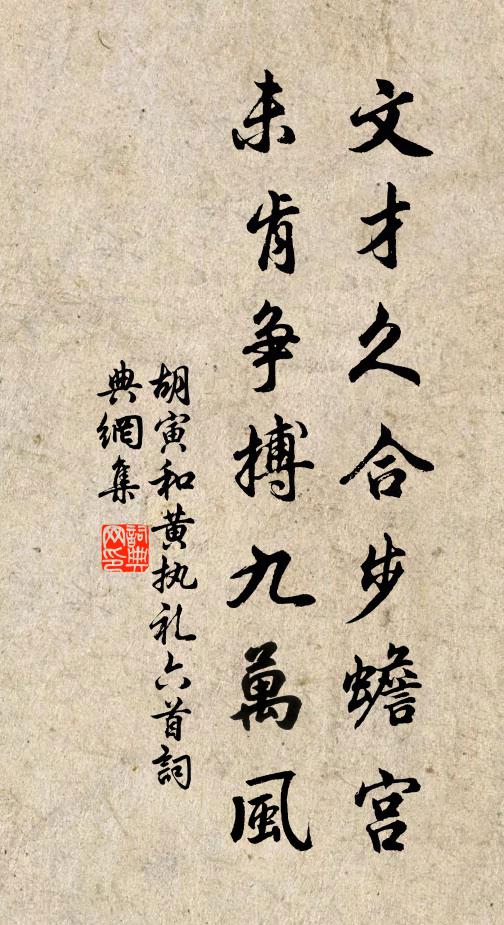 文才久合步蟾宫
未肯争搏九萬風
胡寅和黄执礼六首詞
典網集
詞典
网印